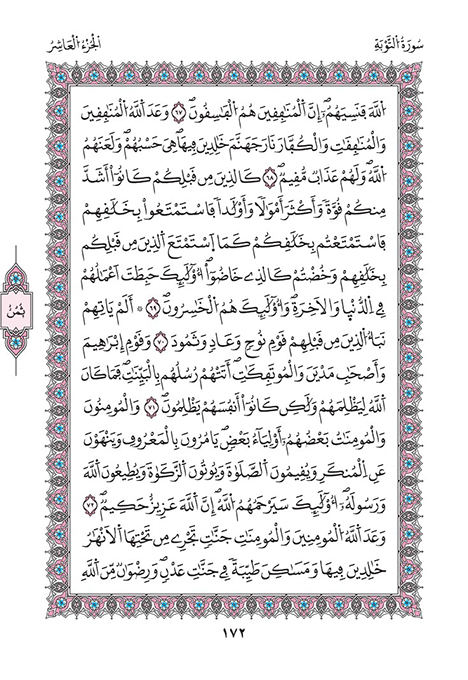 سُورَةُ التَّوْبَةِ
الجُزْءُ العَاشِرُ
اَللَّهَ فَنَسِيَهُمُۥٓۖ إِنَّ اَلْمُنَٰفِقِينَ هُمُ اُلْفَٰسِقُونَۖ ٦٧ وَعَدَ اَللَّهُ اُلْمُنَٰفِقِينَ
وَالْمُنَٰفِقَٰتِ وَالْكُفَّارَ نَارَ جَهَنَّمَ خَٰلِدِينَ فِيهَاۖ هِيَ حَسْبُهُمْۖ وَلَعَنَهُمُ
اُللَّهُۖ وَلَهُمْ عَذَابٞ مُّقِيمٞۖ ٦٨ كَالذِينَ مِن قَبْلِكُمْ كَانُوٓاْ أَشَدَّ
مِنكُمْ قُوَّةٗ وَأَكْثَرَ أَمْوَٰلٗا وَأَوْلَٰدٗا فَاسْتَمْتَعُواْ بِخَلَٰقِهِمْ
فَاسْتَمْتَعْتُم بِخَلَٰقِكُمْ كَمَا اَسْتَمْتَعَ اَلذِينَ مِن قَبْلِكُم
بِخَلَٰقِهِمْ وَخُضْتُمْ كَالذِے خَاضُوٓاْۖ أُوْلَٰٓئِكَ حَبِطَتَ اَعْمَٰلُهُمْ
فِے اِلدُّنْيَا وَالَاخِرَةِۖ وَأُوْلَٰٓئِكَ هُمُ اُلْخَٰسِرُونَۖ ٦٩ ۞ أَلَمْ يَاتِهِمْ
نَبَأُ اُلذِينَ مِن قَبْلِهِمْ قَوْمِ نُوحٖ وَعَادٖ وَثَمُودَ ٧٠ وَقَوْمِ إِبْرَٰهِيمَ
وَأَصْحَٰبِ مَدْيَنَ وَالْمُوتَفِكَٰتِۖ أَتَتْهُمْ رُسُلُهُم بِالْبَيِّنَٰتِۖ فَمَا كَانَ
اَللَّهُ لِيَظْلِمَهُمْ وَلَٰكِن كَانُوٓاْ أَنفُسَهُمْ يَظْلِمُونَۖ ٧١ وَالْمُومِنُونَ
وَالْمُومِنَٰتُ بَعْضُهُمُۥٓ أَوْلِيَآءُ بَعْضٖۖ يَامُرُونَ بِالْمَعْرُوفِ وَيَنْهَوْنَ
عَنِ اِلْمُنكَرِ وَيُقِيمُونَ اَلصَّلَوٰةَ وَيُوتُونَ اَلزَّكَوٰةَ وَيُطِيعُونَ اَللَّهَ
وَرَسُولَهُۥٓۖ أُوْلَٰٓئِكَ سَيَرْحَمُهُمُ اُللَّهُۖ إِنَّ اَللَّهَ عَزِيزٌ حَكِيمٞۖ ٧٢
وَعَدَ اَللَّهُ اُلْمُومِنِينَ وَالْمُومِنَٰتِ جَنَّٰتٖ تَجْرِے مِن تَحْتِهَا اَلَانْهَٰرُ
خَٰلِدِينَ فِيهَا وَمَسَٰكِنَ طَيِّبَةٗ فِے جَنَّٰتِ عَدْنٖۖ وَرِضْوَٰنٞ مِّنَ اَللَّهِ
ثُمُن
١٧٢